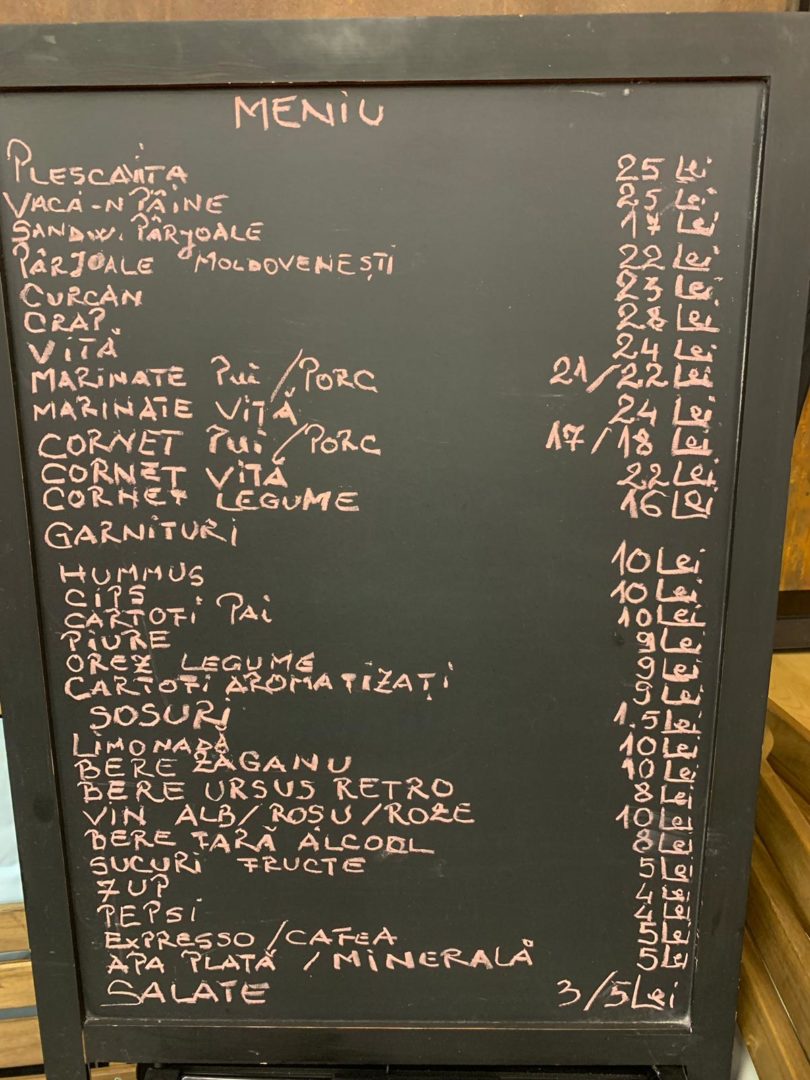 MENIU
PLESCAVITA 25 Lei
VACA-N PÂINE 25 Lei
SANDW. PÂRJOALE 17 Lei
PÂRJOALE MOLDOVENEȘTI 22 Lei
CURCAN 23 Lei
CRAP 28 Lei
VITĂ 24 Lei
MARINATE PUI/PORC 21/22 Lei
MARINATE VITĂ 24 Lei
CORNET PUI/PORC 17/18 Lei
CORNET VITĂ 22 Lei
CORNET LEGUME 16 Lei
GARNITURI
HUMMUS 10 Lei
CIPS 10 Lei
CARTOFI PAI 10 Lei
PIURE 9 Lei
OREZ LEGUME 9 Lei
CARTOFI AROMATIZAȚI 9 Lei
SOSURI 1.5 Lei
LIMONADĂ 10 Lei
BERE ZĂGANU 10 Lei
BERE URSUS RETRO 8 Lei
VIN ALB/ROSU/ROZE 10 Lei
BERE FARĂ ALCOOL 8 Lei
SUCURI FRUCTE 5 Lei
7UP 4 Lei
PEPSI 4 Lei
EXPRESSO/CAFEA 5 Lei
APA PLATĂ / MINERALĂ 5 Lei
SALATE 3/5 Lei